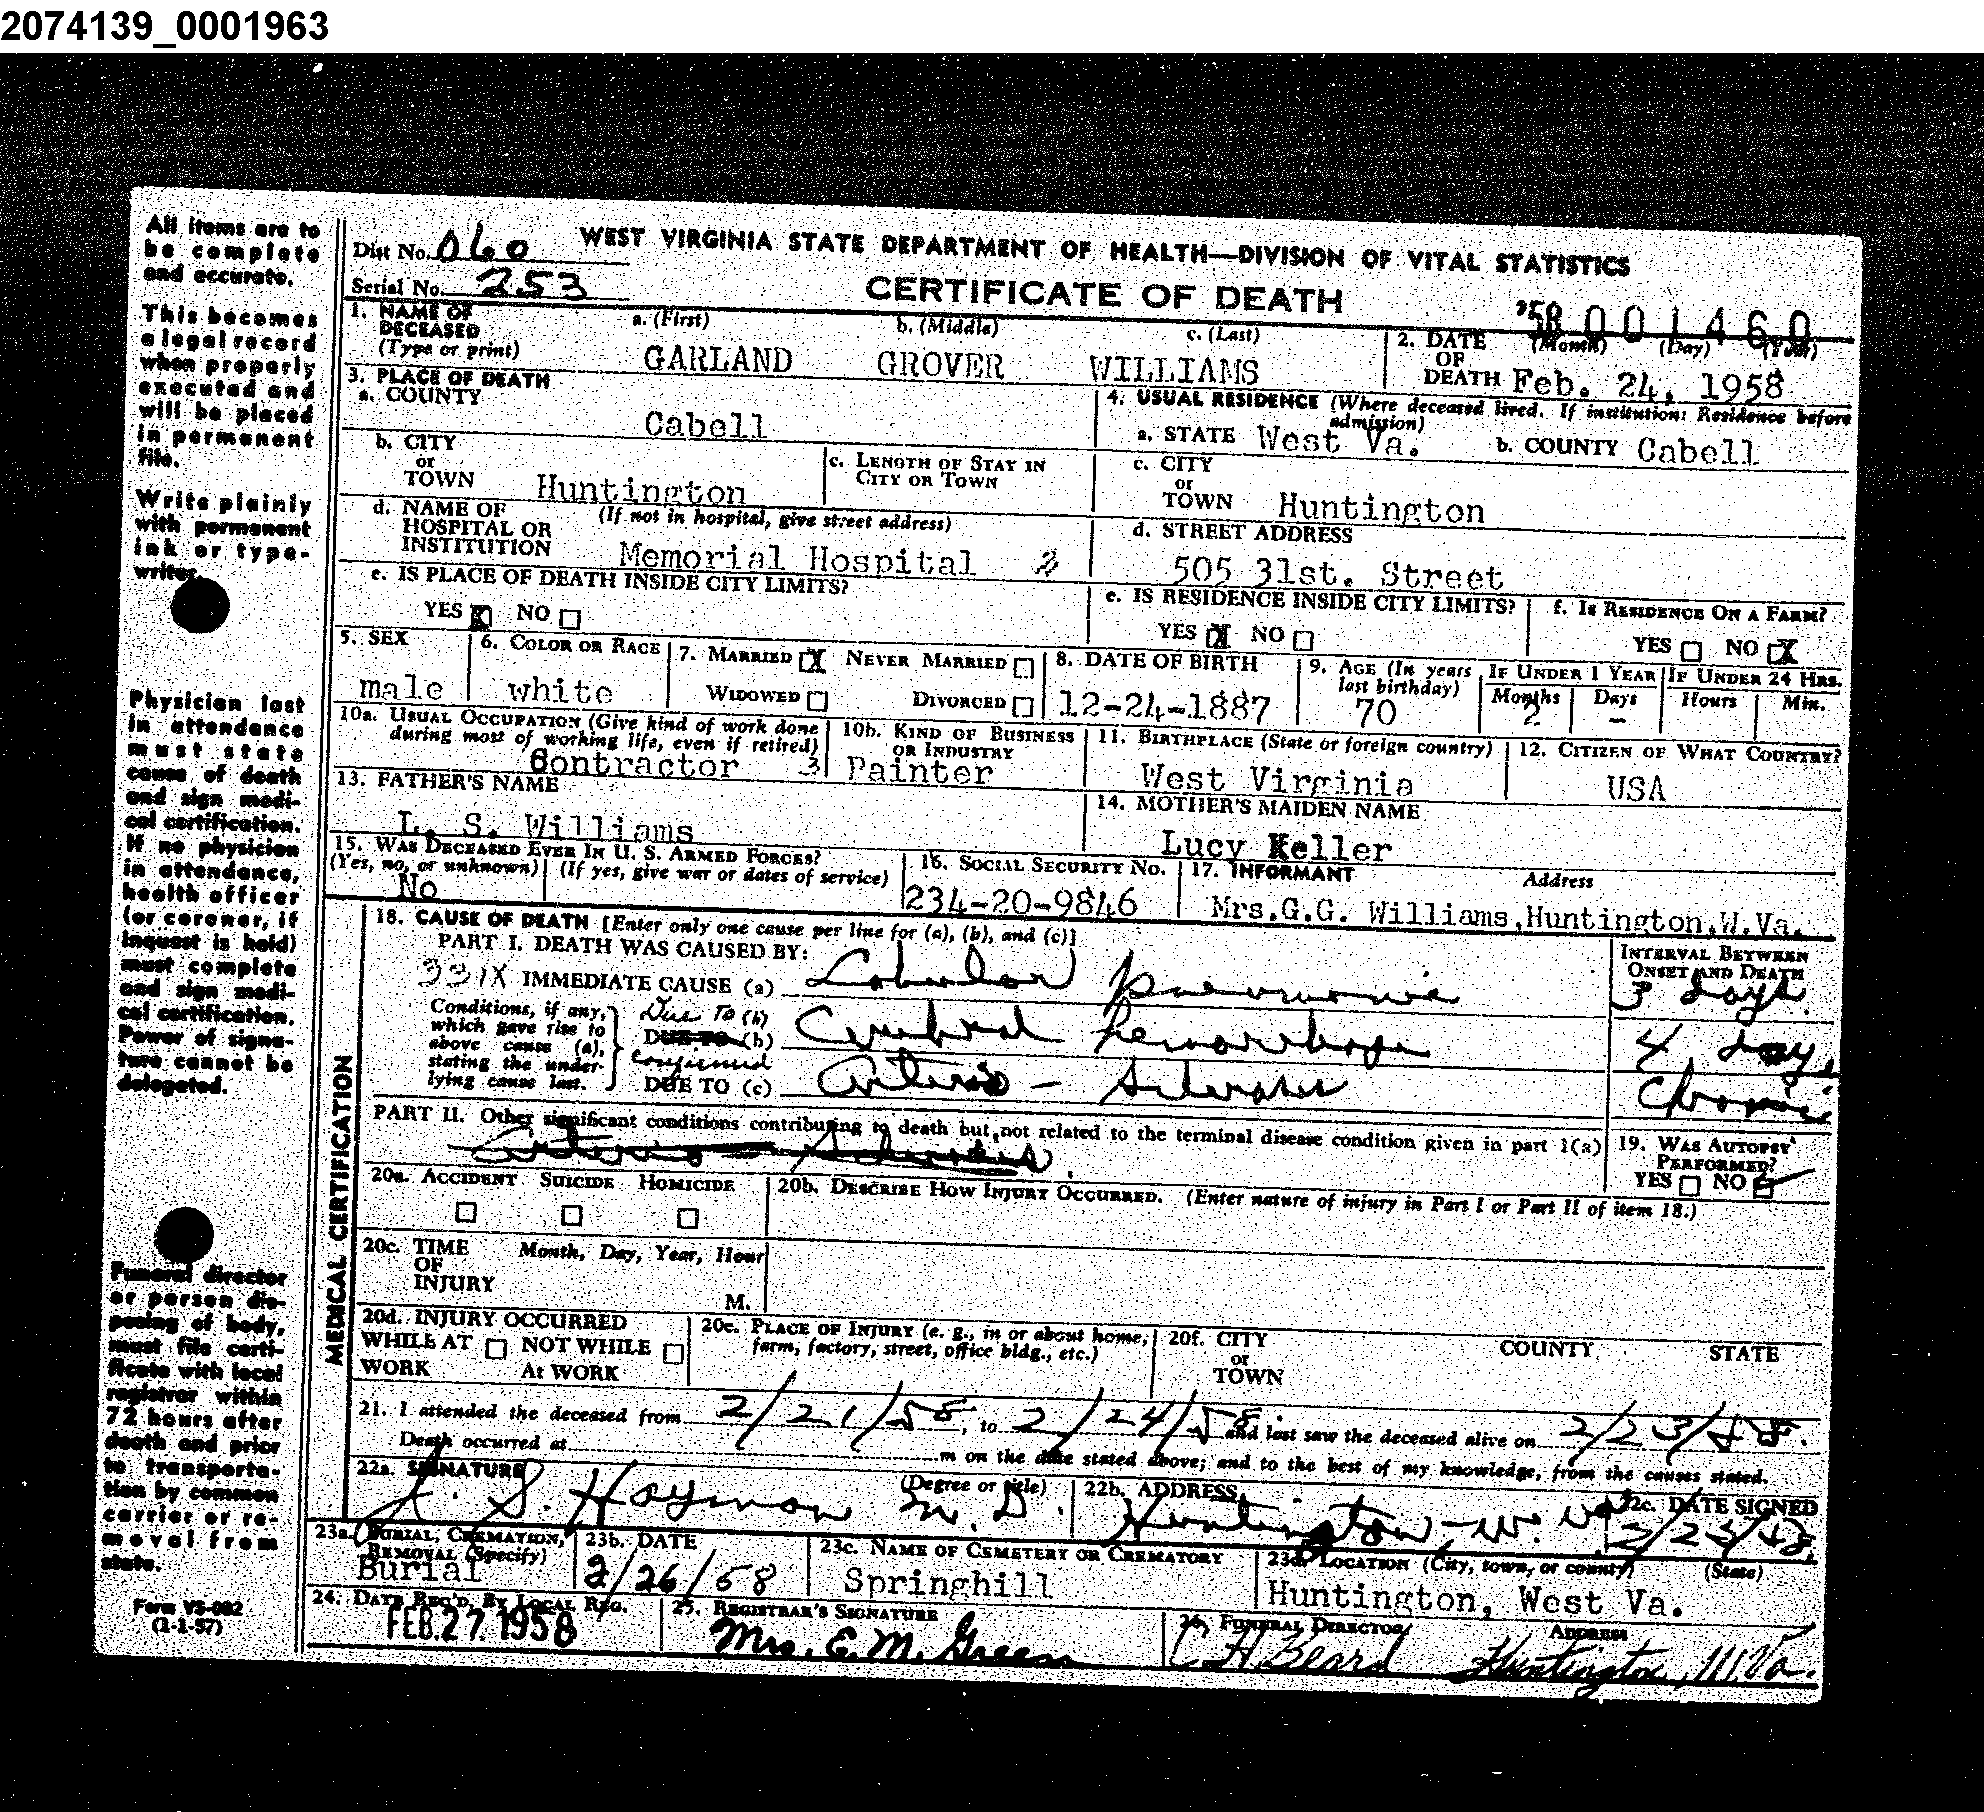 2074139_0001963
All items are to
be complete
and accurate.
This becomes
a legal record
when properly
executed and
will be placed
in permanent
file.
Write plainly
with permanent
ink or type-
writer.
Physician last
in attendance
must state
cause of death
and sign medi-
cal certification.
If no physician
in attendance,
health officer
(or coroner, if
inquest is held)
must complete
and sign medi-
cal certification.
Power of signa-
ture cannot be
delegated.
Funeral director
or person dis-
posing of body,
must file certi-
ficate with local
registrar within
72 hours after
death and prior
to transporta-
tion by common
carrier or re-
moval from
state.
Form VS-002
(1-1-57)
Dist No. 060
WEST VIRGINIA STATE DEPARTMENT OF HEALTH—DIVISION OF VITAL STATISTICS
Serial No. 253
CERTIFICATE OF DEATH
'58 001460
1. NAME OF DECEASED (Type or print) a. (First) b. (Middle) c. (Last)
GARLAND GROVER WILLIAMS
2. DATE OF DEATH (Month) (Day) (Year)
Feb. 24, 1958
3. PLACE OF DEATH
a. COUNTY Cabell
4. USUAL RESIDENCE (Where deceased lived. If institution: Residence before admission)
a. STATE West Va. b. COUNTY Cabell
b. CITY or TOWN Huntington
c. LENGTH OF STAY IN CITY OR TOWN
c. CITY or TOWN Huntington
d. NAME OF HOSPITAL OR INSTITUTION (If not in hospital, give street address)
Memorial Hospital 2
d. STREET ADDRESS
505 31st. Street
e. IS PLACE OF DEATH INSIDE CITY LIMITS?
YES X NO
e. IS RESIDENCE INSIDE CITY LIMITS?
YES X NO
f. IS RESIDENCE ON A FARM?
YES NO X
5. SEX male
6. COLOR OR RACE white
7. MARRIED X NEVER MARRIED
WIDOWED DIVORCED
8. DATE OF BIRTH 12-24-1887
9. AGE (In years last birthday) 70
IF UNDER 1 YEAR Months 2 Days -
IF UNDER 24 HRS. Hours Min.
10a. USUAL OCCUPATION (Give kind of work done during most of working life, even if retired)
Contractor 3
10b. KIND OF BUSINESS OR INDUSTRY
Painter
11. BIRTHPLACE (State or foreign country)
West Virginia
12. CITIZEN OF WHAT COUNTRY?
USA
13. FATHER'S NAME
L. S. Williams
14. MOTHER'S MAIDEN NAME
Lucy Keller
15. WAS DECEASED EVER IN U. S. ARMED FORCES?
(Yes, no, or unknown) (If yes, give war or dates of service)
No
16. SOCIAL SECURITY No.
234-20-9846
17. INFORMANT Address
Mrs.G.G. Williams,Huntington,W.Va.
MEDICAL CERTIFICATION
18. CAUSE OF DEATH [Enter only one cause per line for (a), (b), and (c)]
PART I. DEATH WAS CAUSED BY:
INTERVAL BETWEEN ONSET AND DEATH
331X IMMEDIATE CAUSE (a) Lobular pneumonia 3 days
Conditions, if any, which gave rise to above cause (a), stating the underlying cause last.
Due To (b)
DUE TO (b) Cerebral hemorrhage 4 days
confirmed
DUE TO (c) Arterio - Sclerosis Chronic
PART II. Other significant conditions contributing to death but not related to the terminal disease condition given in part 1(a)
Arterio - Sclerosis.
19. WAS AUTOPSY PERFORMED?
YES NO
20a. ACCIDENT SUICIDE HOMICIDE
20b. DESCRIBE HOW INJURY OCCURRED. (Enter nature of injury in Part I or Part II of item 18.)
20c. TIME OF INJURY Month, Day, Year, Hour
M.
20d. INJURY OCCURRED
WHILE AT WORK NOT WHILE At WORK
20e. PLACE OF INJURY (e. g., in or about home, farm, factory, street, office bldg., etc.)
20f. CITY or TOWN COUNTY STATE
21. I attended the deceased from 2/21/58, to 2/24/58 and last saw the deceased alive on 2/23/58.
Death occurred at m on the date stated above; and to the best of my knowledge, from the causes stated.
22a. SIGNATURE (Degree or title)
S. Hayman M.D.
22b. ADDRESS
Huntington-W. Va
22c. DATE SIGNED
23a. BURIAL, CREMATION, REMOVAL (Specify)
Burial
23b. DATE
2/26/58
23c. NAME OF CEMETERY OR CREMATORY
Springhill
23d. LOCATION (City, town, or county) (State)
Huntington, West Va.
24. DATE REC'D. BY LOCAL REG.
FEB. 27. 1958
25. REGISTRAR'S SIGNATURE
Mrs. E. M. Green
26. FUNERAL DIRECTOR ADDRESS
C H Beard Huntington, W.Va.